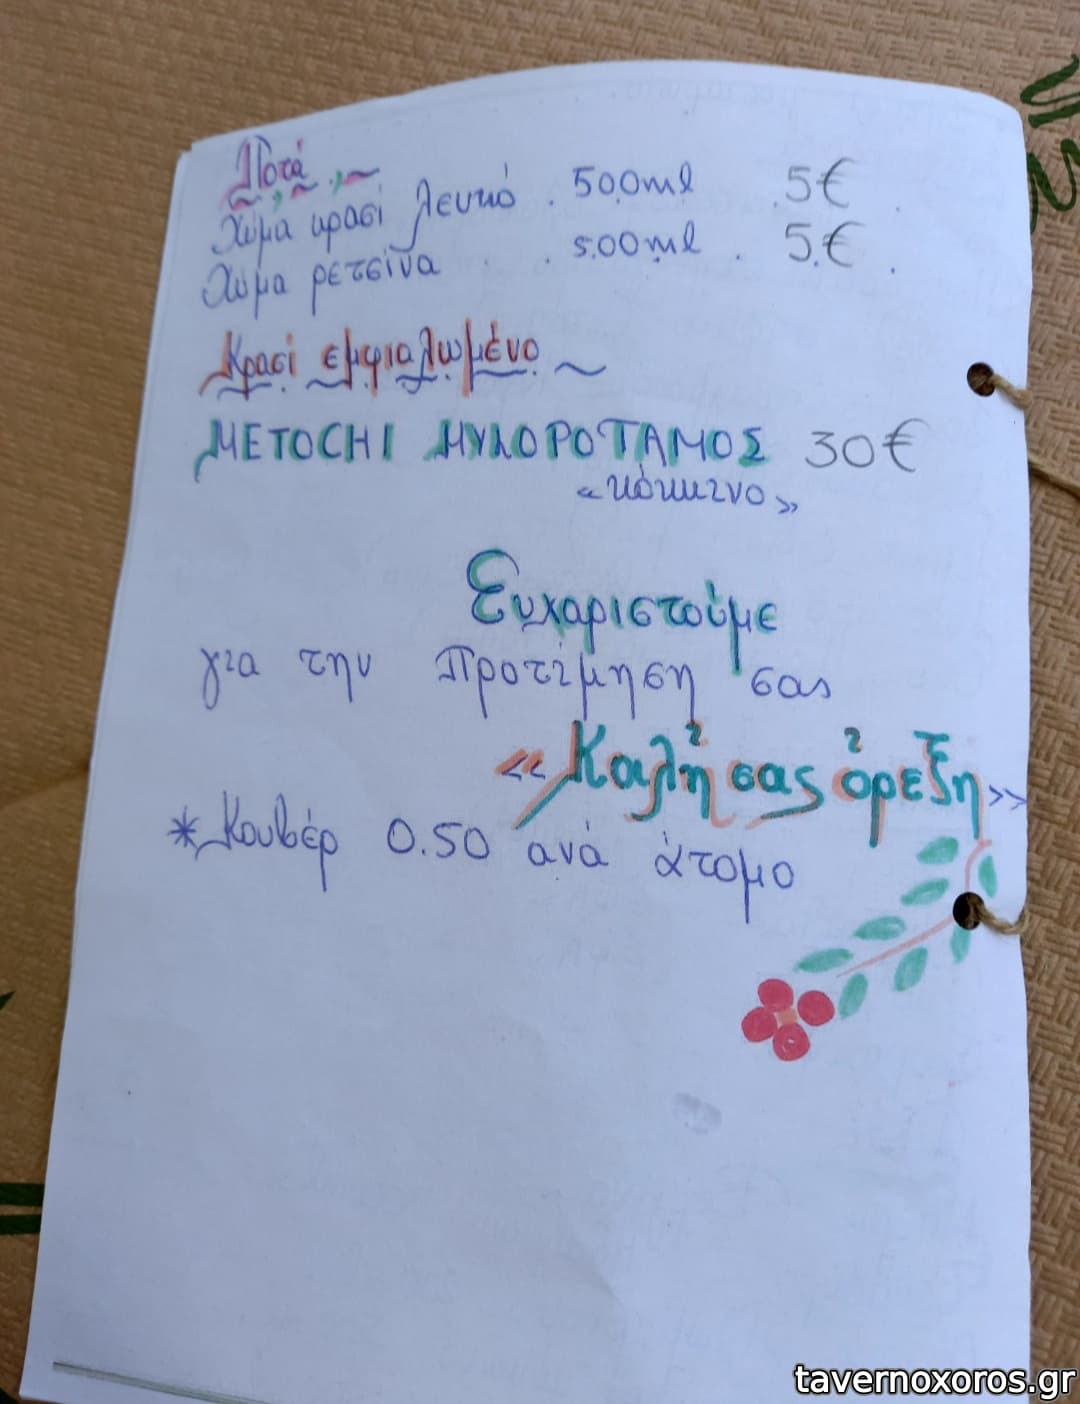 Ποτά
Χύμα κρασί λευκό . 500ml . 5€ .
Χύμα ρετσίνα . . 500ml . 5.€ .
Κρασί εμφιαλωμένο
METOCHI ΜΥΛΟΡΟΤΑΜΟΣ 30€
«κόκκινο»
Ευχαριστούμε
για την Προτίμηση σας
«Καλή σας όρεξη»
*Κουβέρ 0.50 ανά άτομο
tavernoxoros.gr